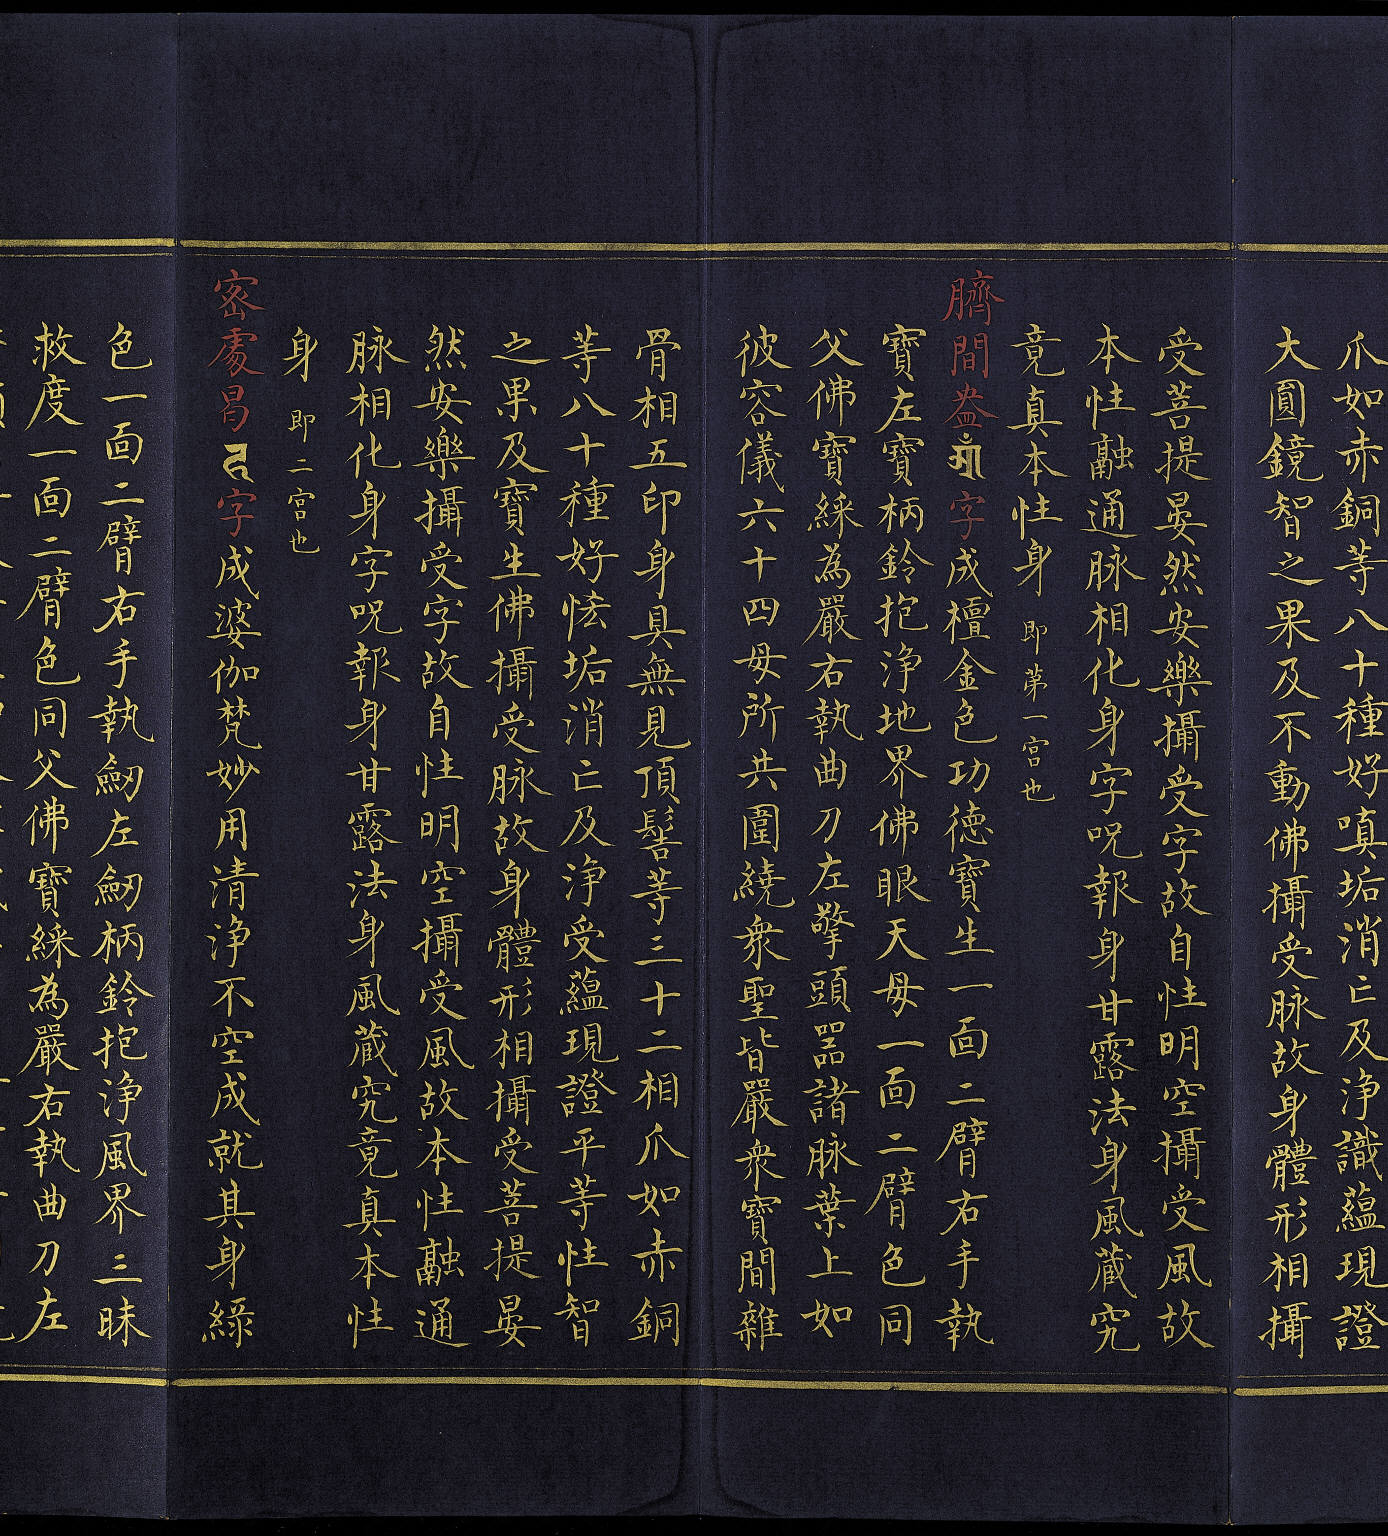 爪如赤銅等八十種好嗔垢消亡及淨識蘊現證
大圓鏡智之果及不動佛攝受脉故身體形相攝
受菩提晏然安樂攝受字故自性明空攝受風故
本性融通脉相化身字呪報身甘露法身風藏究
竟真本性身 即第一宮也
臍間盎字成檀金色功德寶生一面二臂右手執
寶左寶柄鈴抱淨地界佛眼天母一面二臂色同
父佛寶綵為嚴右執曲刀左擎頭器諸脉葉上如
彼容儀六十四母所共圍繞衆聖皆嚴衆寶間雜
骨相五印身具無見頂髻等三十二相爪如赤銅
等八十種好恡垢消亡及淨受蘊現證平等性智
之果及寶生佛攝受脉故身體形相攝受菩提晏
然安樂攝受字故自性明空攝受風故本性融通
脉相化身字呪報身甘露法身風藏究竟真本性
身 即二宮也
密處曷字成婆伽梵妙用清淨不空成就其身綠
色一面二臂右手執劒左劒柄鈴抱淨風界三昧
救度一面二臂色同父佛寶綵為嚴右執曲刀左